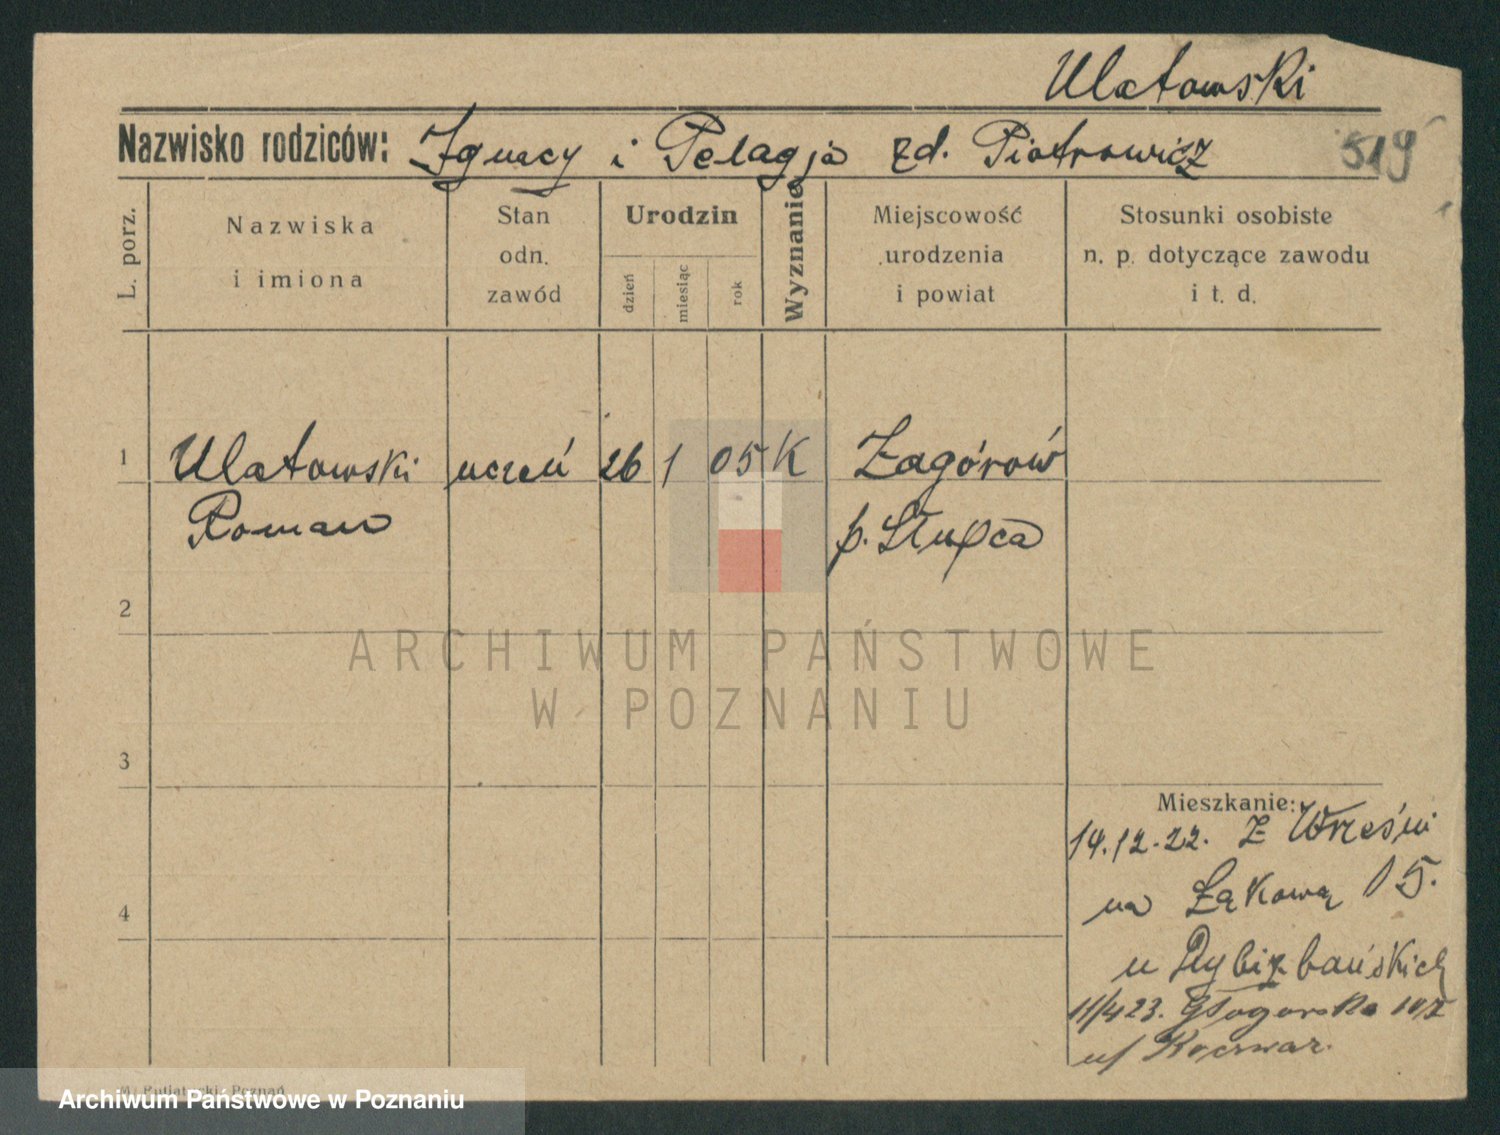 Ulatowski
Nazwisko rodziców: Ignacy i Pelagja zd. Piotrowicz
519
L. porz.
Nazwiska
i imiona
Stan
odn.
zawód
Urodzin
dzień
miesiąc
rok
Wyznanie
Miejscowość
urodzenia
i powiat
Stosunki osobiste
n. p. dotyczące zawodu
i t. d.
1 Ulatowski uczeń 26 1 05 K Zagórów
Roman p. Słupca
2
ARCHIWUM PAŃSTWOWE
W POZNANIU
3
Mieszkanie:
14.12.22. z Wrześni
na Łąkową 15.
4
u Rybizbańskich
11/4 23. Głogowska
u/
Archiwum Państwowe w Poznaniu